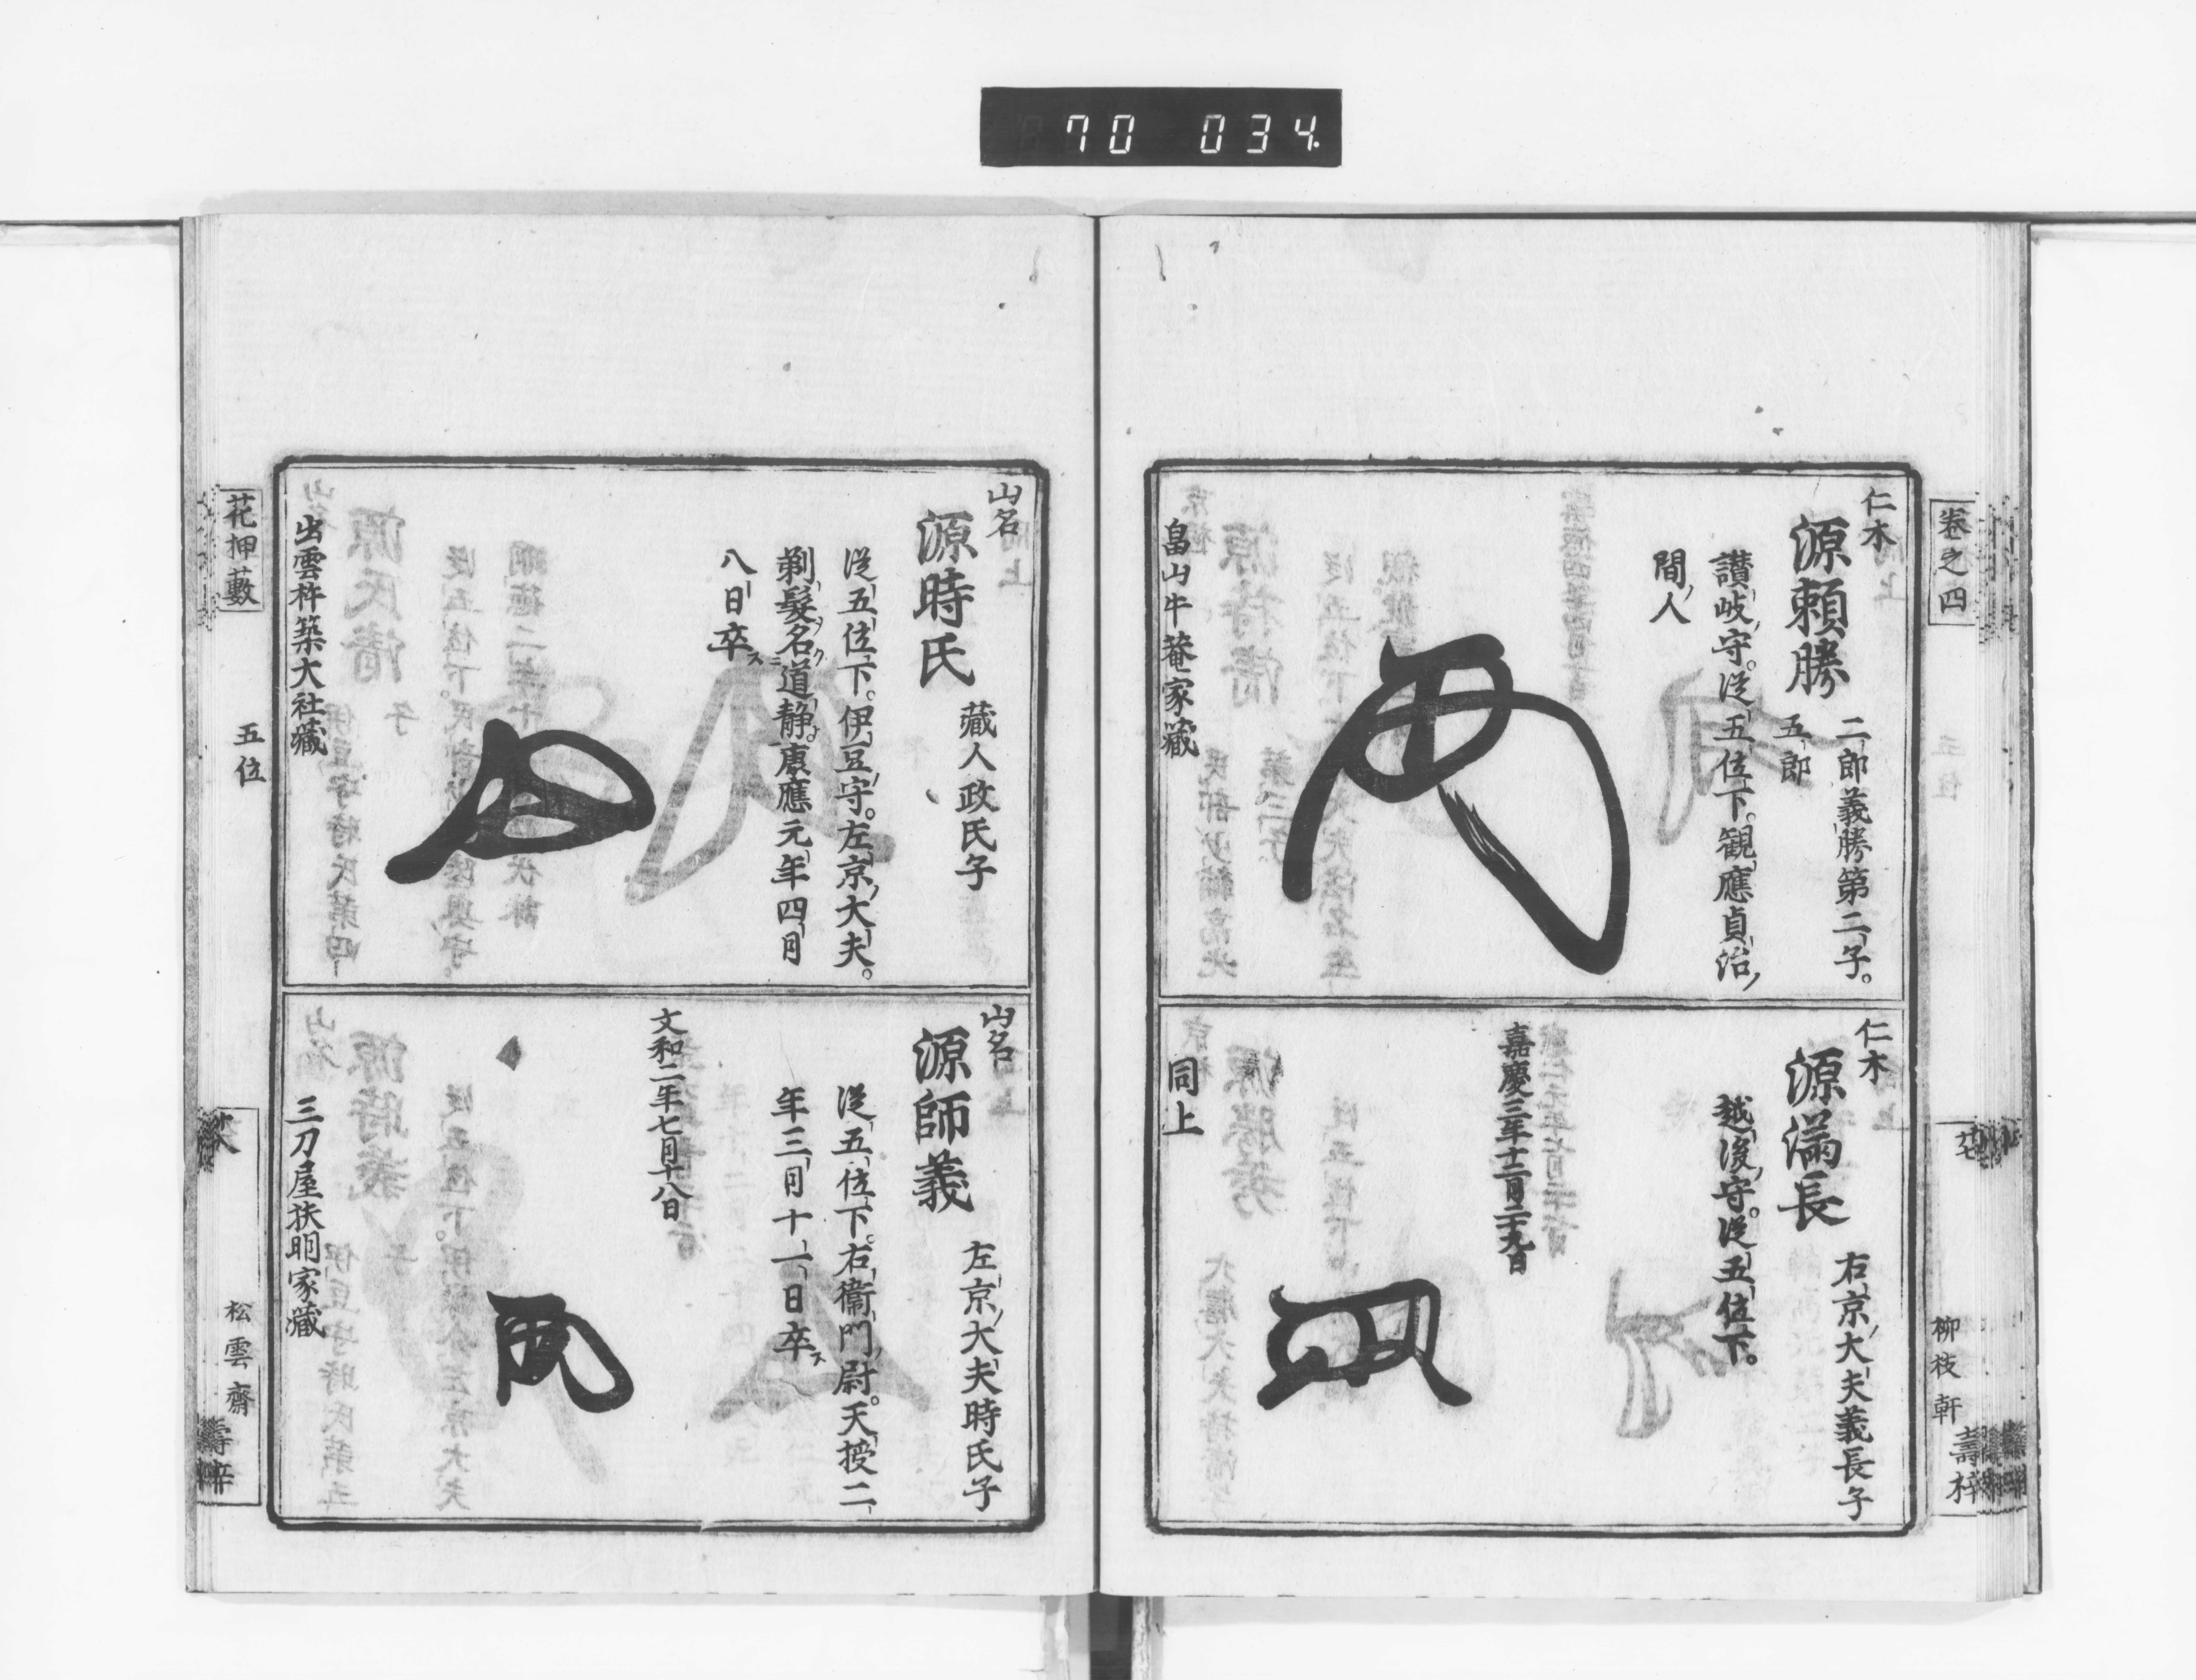 70 034.
卷之四
仁木
源頼勝
二郎義勝第二子。
五郎
讃岐守。從五位下。觀應貞治
間人
畠山牛菴家藏
仁木
源滿長
右京大夫義長子
越後守。從五位下。
嘉慶三年十二月二十九日
同上
柳枝軒
壽梓
山名
源時氏
藏人政氏子
從五位下。伊豆守。左京大夫。
剃髮名道静。康應元年四月
八日卒ス
出雲杵築大社藏
山名
源師義
左京大夫時氏子
從五位下。右衞門尉。天授二
年三月十一日卒ス
文和二年七月十八日
三刀屋扶明家藏
花押藪
五位
松雲齋
壽梓